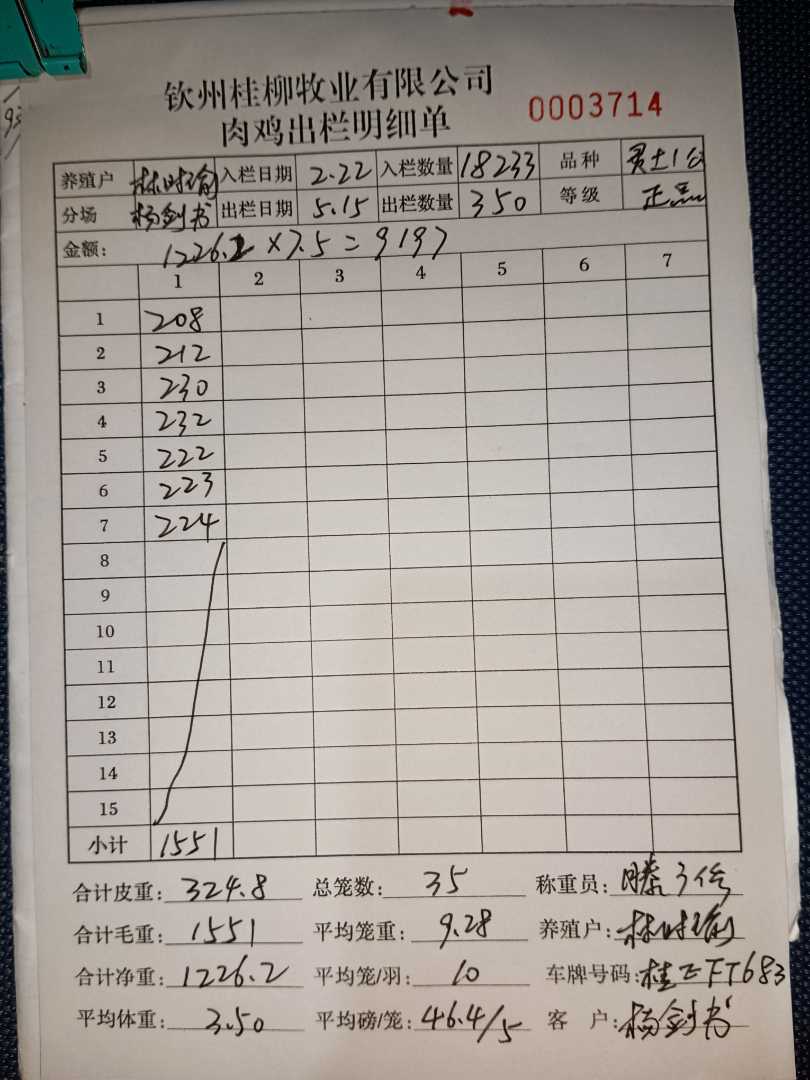 钦州桂柳牧业有限公司
肉鸡出栏明细单 0003714
养殖户 林时瑜 入栏日期 2.22 入栏数量 18233 品种 土1公
分场 杨剑书 出栏日期 5.15 出栏数量 350 等级 正品
金额: 1226.2×7.5=9197
1 2 3 4 5 6 7
1 208
2 212
3 230
4 232
5 222
6 223
7 224
8
9
10
11
12
13
14
15
小计 1551
合计皮重: 324.8 总笼数: 35 称重员: 滕
合计毛重: 1551 平均笼重: 9.28 养殖户: 林时瑜
合计净重: 1226.2 平均笼/羽: 10 车牌号码: 桂 FT683
平均体重: 3.50 平均磅/笼: 46.4/5 客 户: 杨剑书